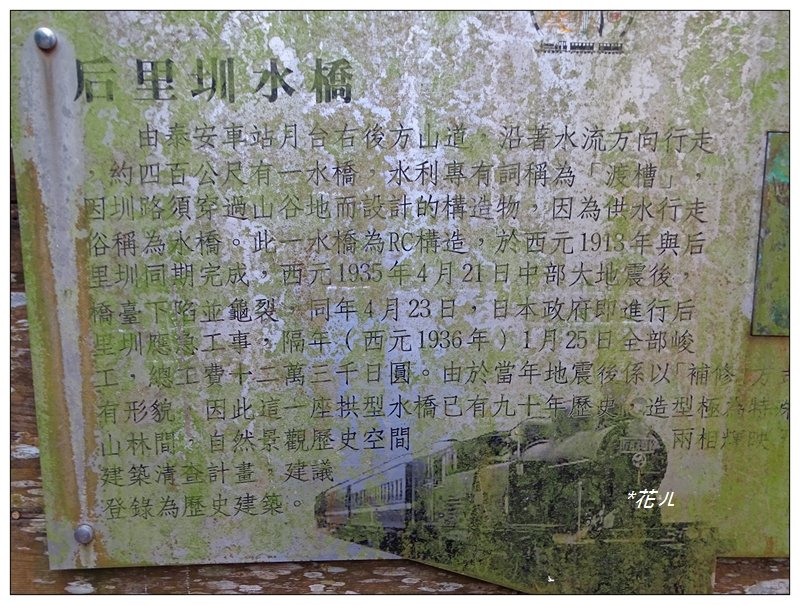 后里圳水橋
由泰安車站月台右後方山道，沿著水流方向行走
，約四百公尺有一水橋，水利專有詞稱為「渡槽」，
因圳路須穿過山谷地而設計的構造物，因為供水行走
俗稱為水橋。此一水橋為RC構造，於西元1913年與后
里圳同期完成，西元1935年4月21日中部大地震後，
橋臺下陷並龜裂，同年4月23日，日本政府即進行后
里圳應急工事，隔年（西元1936年）1月25日全部峻
工，總工費十二萬三千日圓。由於當年地震後係以「補修」方
有形貌，因此這一座拱型水橋已有九十年歷史，造型極為特
山林間，自然景觀歷史空間 兩相輝映
建築清查計畫，建議
登錄為歷史建築。
*花ㄦ